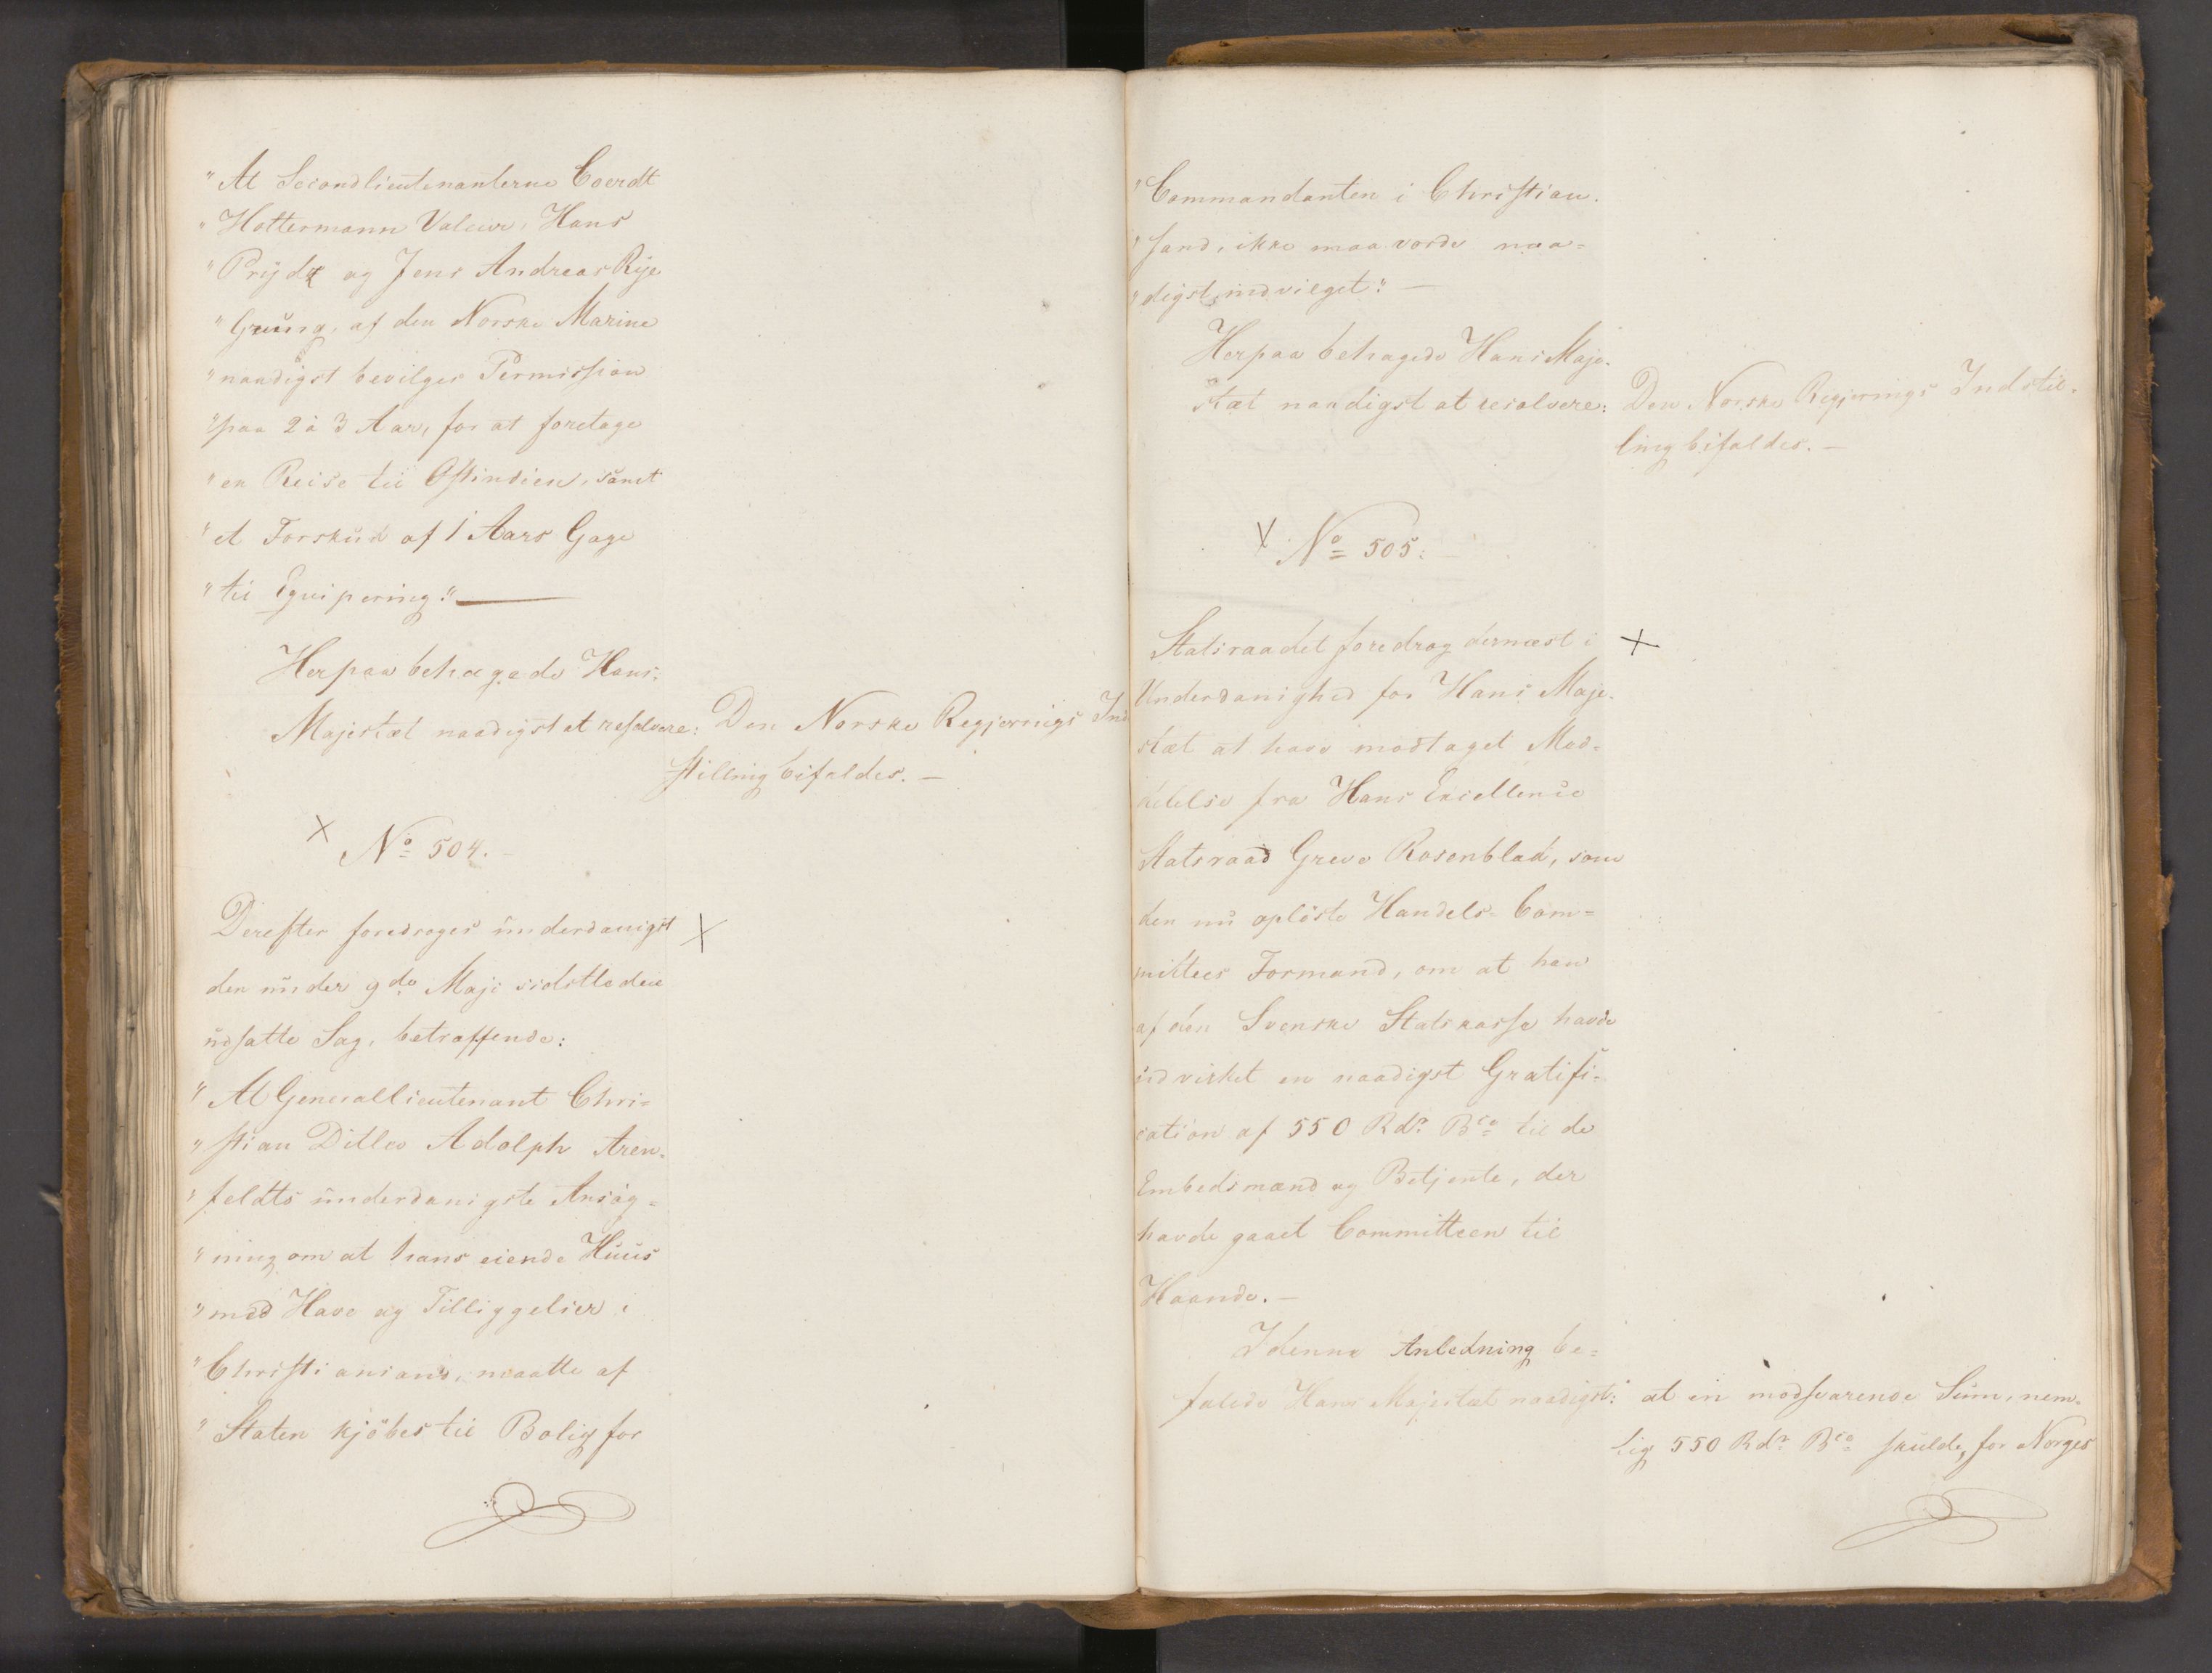 "At Secondlieutenanterne Coerdt
"Holtermann Valeur, Hans
"Prydz og Jens Andreas Rye
"Grung, af den Norske Marine
"naadigst bevilges Permission
"paa 2 à 3 Aar, for at foretage
"en Reise til Ostindien, samt
"et Forskud af 1 Aars Gage
"til Equipering."—
Herpaa behagede Hans
Majestæt naadigst at resolvere: Den Norske Regjerings Ind
stilling bifaldes.—
x
No 504.
Derefter foredroges underdanigst x
den under 9de Maji sidstleden
udsatte Sag, betræffende:
"At Generallieutenant Chri=
"stian Ditlev Adolph Aren=
"feldts underdanigste Ansøg=
"ning om at hans eiende Huus
"med Have og Tilliggelser i
"Christiansand, maatte af
"Staten kjöbes til Bolig for
"Commandanten i Christian.
"sand, ikke maa vorde naa=
"digst indvilget."—
Herpaa behagede Hans Maje.
stæt naadigst at resolvere: Den Norske Regjerings Indstil=
ling bifaldes.—
x No 505.
Statsraadet foredrog dernæst i x
Underdanighed for Hans Maje.
stæt at have modtaget Med=
delelse fra Hans Excellence
Statsraad Greve Rosenblad, som
den nu oplöste Handels=Com=
mittees Formand, om at han
af den Svenske Statskasse havde
udvirket en naadigst Gratifi=
cation af 550 Rdr Bco til de
Embedsmænd og Betjente, der
havde gaaet Committeen til
Haande.—
I denne Anledning be=
falede Hans Majestæt naadigst: at en modsvarende Sum, nem=
lig 550 Rdr Bco skulde, for Norges